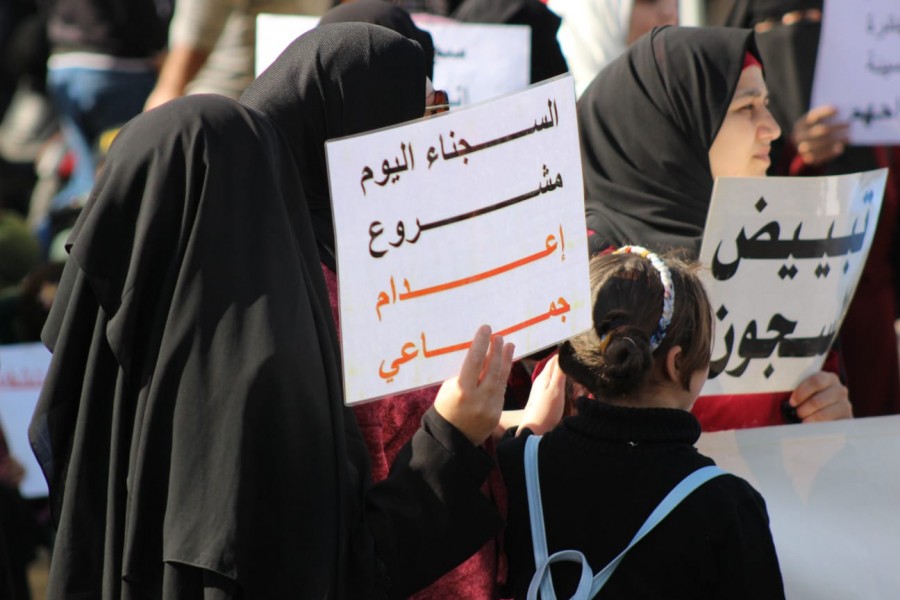 السجناء اليوم
مشروع
إعدام
جماعي
تبييض
سجون